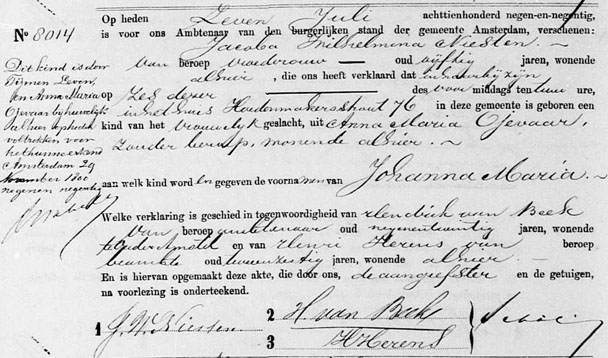 Op heden Zeven Juli achttienhonderd negen-en-negentig,
No 8014
is voor ons Ambtenaar van den burgerlijken stand der gemeente Amsterdam, verschenen:
Jacoba Wilhelmina Niesten
van beroep vroedvrouw oud vijftig jaren, wonende
alhier, die ons heeft verklaard dat in haar bijzijn
op Zes dezer des voor middags ten ure,
in het huis Houtmakersstraat 76 in deze gemeente is geboren een
kind van het vrouwelijk geslacht, uit Anna Maria Ojevaar,
zonder beroep, wonende alhier.
aan welk kind wordt en gegeven de voornamen van Johanna Maria
Welke verklaring is geschied in tegenwoordigheid van Hendrik van Beek
van beroep oud negenentwintig jaren, wonende
en van Henri Herens van beroep
beambte oud tweeenzestig jaren, wonende alhier
En is hiervan opgemaakt deze akte, die door ons, de aangeefster en de getuigen,
na voorlezing is onderteekend.
1 J. W. Niesten
2 H. van Beek
3 H Herens
Dit kind is door
Zeven,
en Anna Maria
Ojevaar bij huwelijk
voltrokken voor
Amsterdam 29
November 1800
negen en negentig